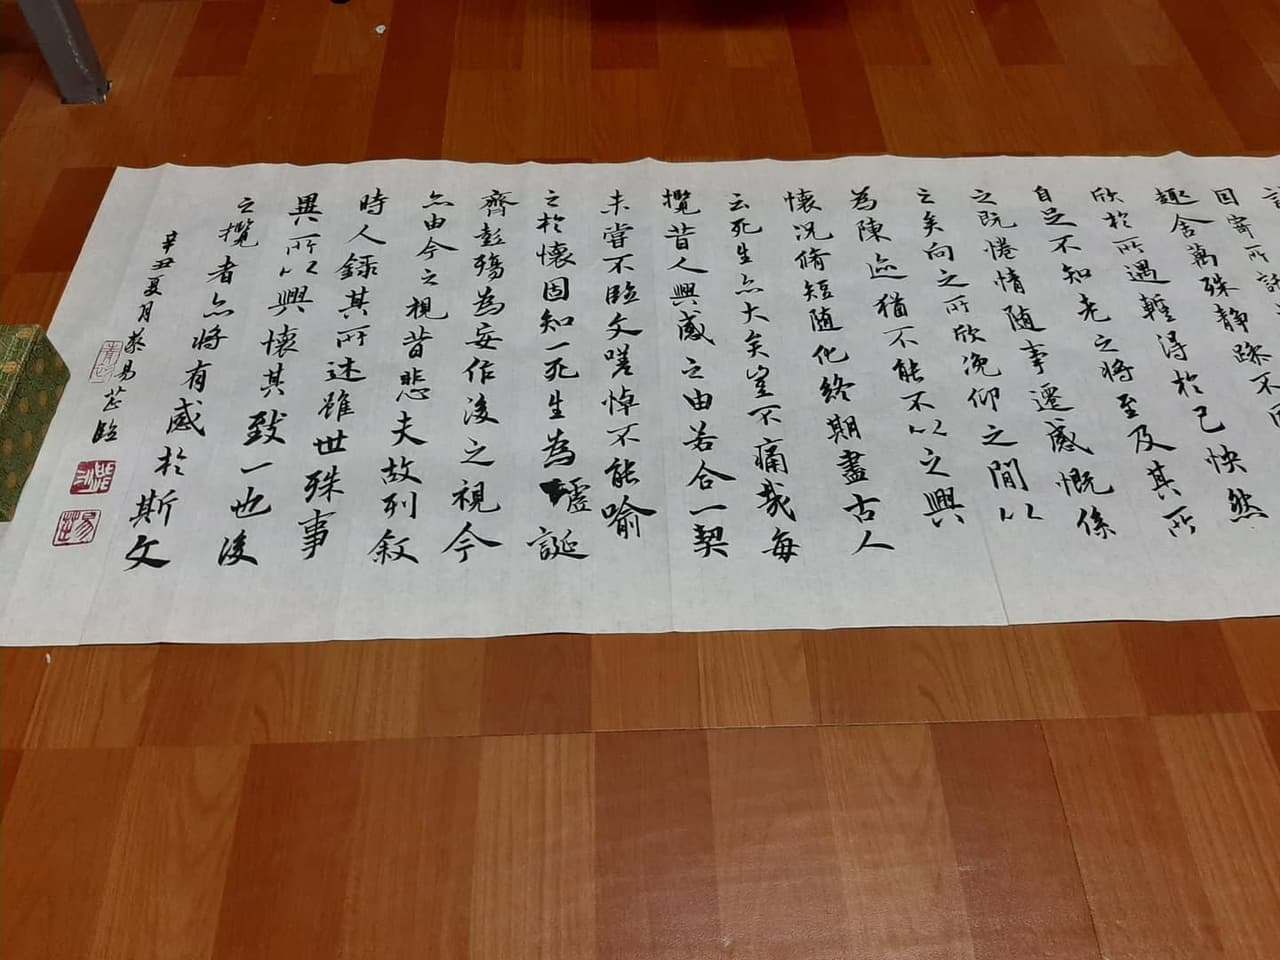 因寄所託
趣舍萬殊靜躁不同
欣於所遇輕得於己怏然
自足不知老之將至及其所
之既惓情隨事遷感慨係
之矣向之所欣俛仰之間以
為陳迹猶不能不以之興
懷況脩短随化終期盡古人
云死生亦大矣豈不痛哉每
攬昔人興感之由若合一契
未嘗不臨文嗟悼不能喻
之於懷固知一死生為虛誕
齊彭殤為妄作後之視今
亦由今之視昔悲夫故列叙
時人錄其所述雖世殊事
異所以興懷其致一也後
之攬者亦將有感於斯文
辛丑夏月 易芷臨